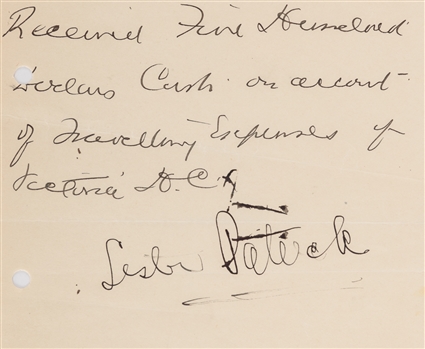 Received Five Hundred
Dollars Cash on account
of Travelling Expenses of
Victoria H.C.
Lester Patrick